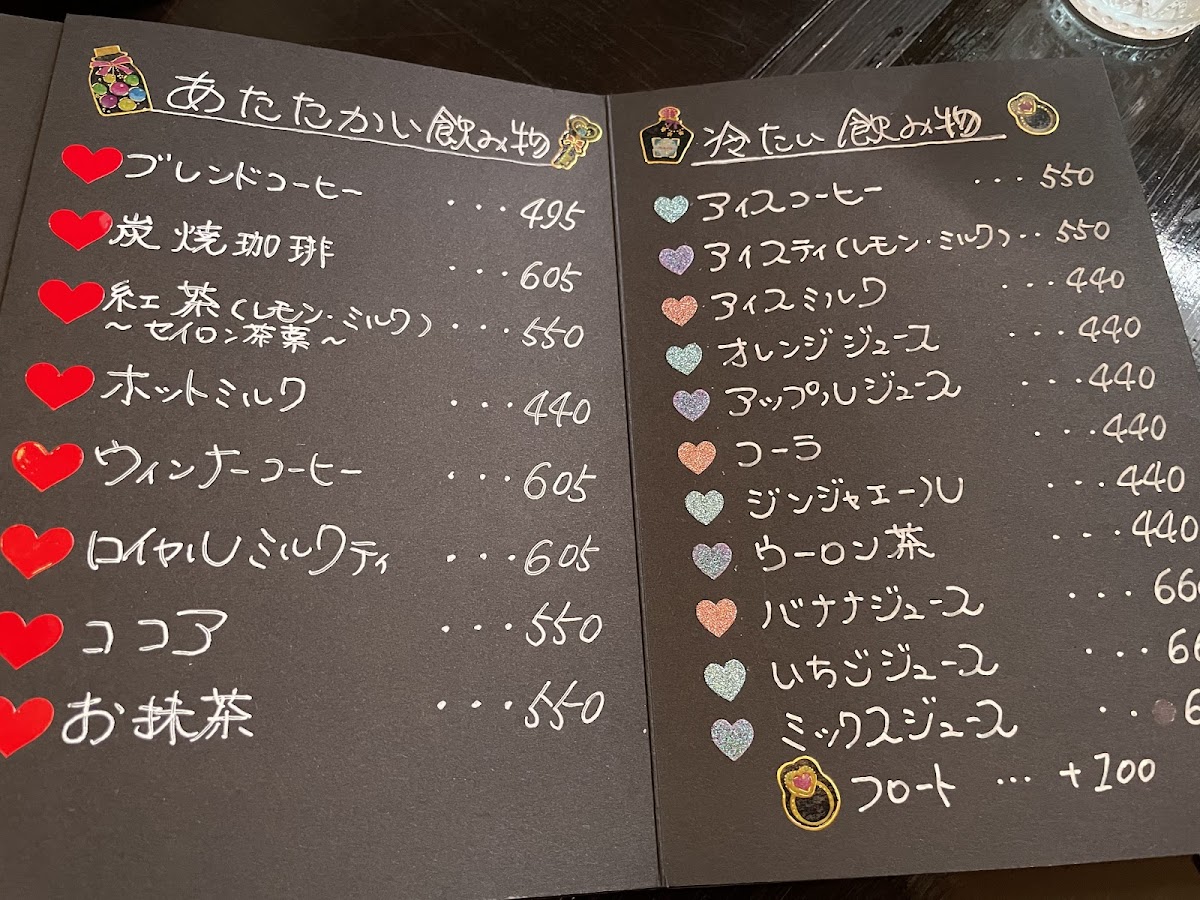 あたたかい飲み物
ブレンドコーヒー ・・・495
炭焼珈琲 ・・・605
紅茶(レモン・ミルク) ・・・550
～セイロン茶葉～
ホットミルク ・・・440
ウィンナーコーヒー ・・・605
ロイヤルミルクティ ・・・605
ココア ・・・550
お抹茶 ・・・550
冷たい飲み物
アイスコーヒー ・・・550
アイスティ(レモン・ミルク)・・550
アイスミルク ・・・440
オレンジジュース ・・・440
アップルジュース ・・・440
コーラ ・・・440
ジンジャエール ・・・440
ウーロン茶 ・・・440
バナナジュース ・・・66
いちごジュース ・・・66
ミックスジュース ・・・6
フロート ・・・ +100